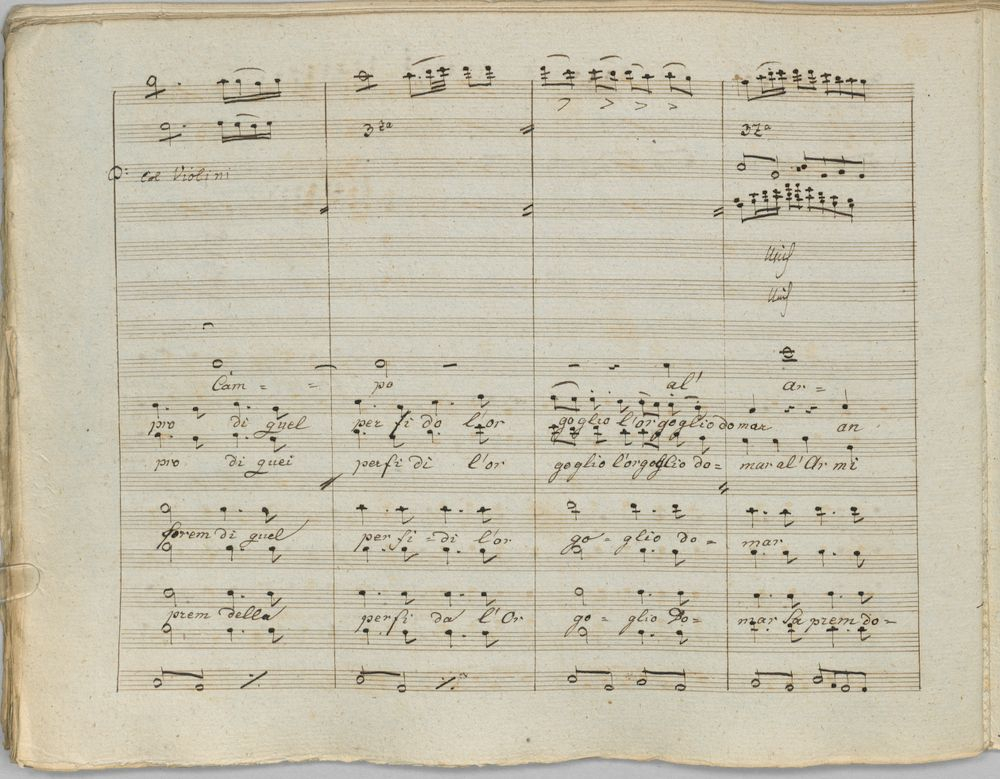 3za 3za
Col Violini
Unis
Unis
Cam = = po al' ar =
pro di quel per fi do l'or goglio l'orgoglio do mar an
pro di quei perfi di l'or goglio l'orgoglio do= mar al' Ar mi
prem di quel per fi = di l'or go = glio do = mar
prem della perfi da l'Or go = glio Do= mar Sa prem do=